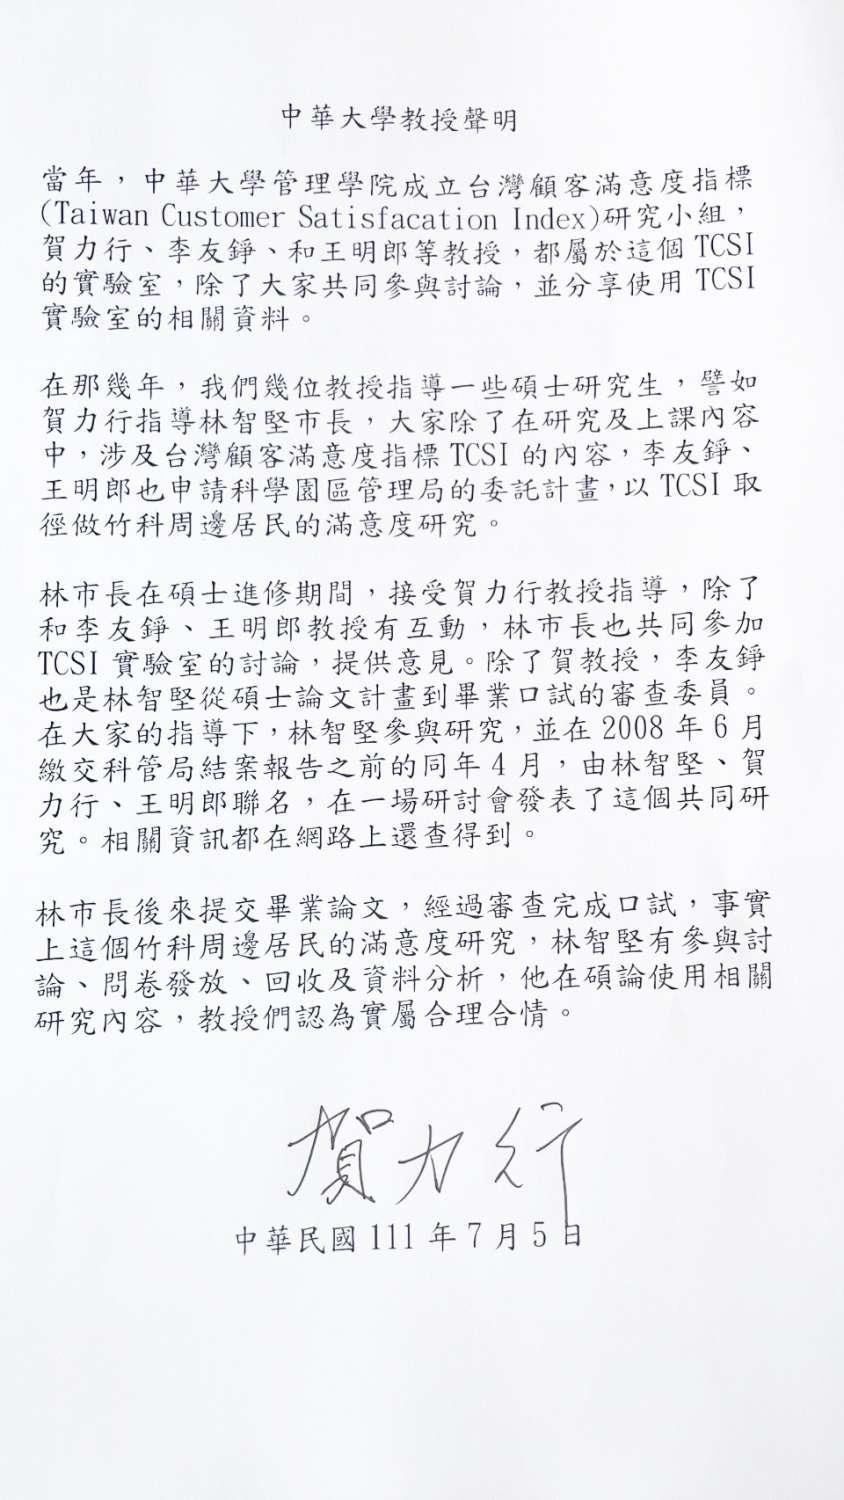 中華大學教授聲明
當年，中華大學管理學院成立台灣顧客滿意度指標
(Taiwan Customer Satisfacation Index)研究小組，
賀力行、李友錚、和王明郎等教授，都屬於這個 TCSI
的實驗室，除了大家共同參與討論，並分享使用 TCSI
實驗室的相關資料。
在那幾年，我們幾位教授指導一些碩士研究生，譬如
賀力行指導林智堅市長，大家除了在研究及上課內容
中，涉及台灣顧客滿意度指標 TCSI 的內容，李友錚、
王明郎也申請科學園區管理局的委託計畫，以 TCSI 取
徑做竹科周邊居民的滿意度研究。
林市長在碩士進修期間，接受賀力行教授指導，除了
和李友錚、王明郎教授有互動，林市長也共同參加
TCSI 實驗室的討論，提供意見。除了賀教授，李友錚
也是林智堅從碩士論文計畫到畢業口試的審查委員。
在大家的指導下，林智堅參與研究，並在 2008 年 6 月
繳交科管局結案報告之前的同年 4 月，由林智堅、賀
力行、王明郎聯名，在一場研討會發表了這個共同研
究。相關資訊都在網路上還查得到。
林市長後來提交畢業論文，經過審查完成口試，事實
上這個竹科周邊居民的滿意度研究，林智堅有參與討
論、問卷發放、回收及資料分析，他在碩論使用相關
研究內容，教授們認為實屬合理合情。
賀力行
中華民國 111 年 7 月 5 日